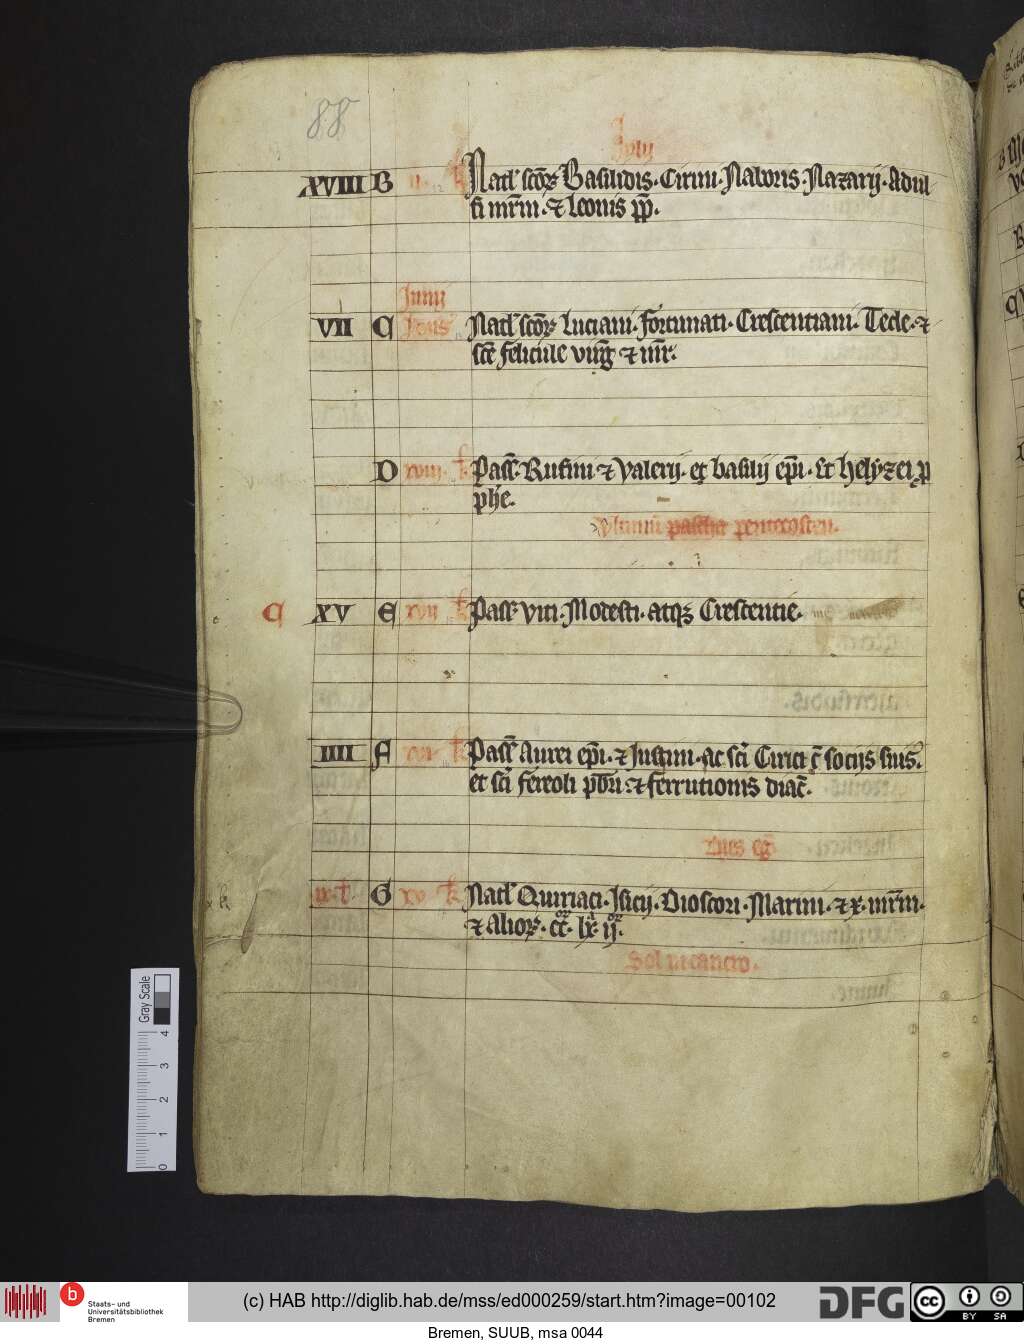 88
July
XVIII B ii. k Natl' scōꝝ Basilidis. Cirini. Naboris. Nazarij. Adul
fi mr̄m. ⁊ Leonis pp̄.
Junij
VII C Idus Natl' scōꝝ Luciani. Fortunati. Crescentiani. Tecle. ⁊
scē Felicule virg̃ ⁊ mr̄.
D xviii. k. Pass̄. Rufini ⁊ Valerij. et basilij ep̄i. Et helyzei ꝓ
phē.
Vltimū pascha pentecosten.
C XV E xvii k Pass̄ Viti. Modesti. atqꝫ Crescentie.
IIII F xvi. k Pass̄ Aurei ep̄i. ⁊ Iustini. ac scī Cirici c̄ socijs suis.
et scī Fereoli p̄bri. ⁊ ferrutionis diac̄.
Dies eḡ
iii. t. G xv k Natl' Quiriaci. Isicij. Dioscori. Marini. ⁊ x. mr̄m.
⁊ Alioꝝ. cc. lx. ij.
Sol in cancro.
Gray Scale
4
3
2
1
0
b Staats- und
Universitätsbibliothek
Bremen
(c) HAB http://diglib.hab.de/mss/ed000259/start.htm?image=00102
DFG
cc BY SA
Bremen, SUUB, msa 0044